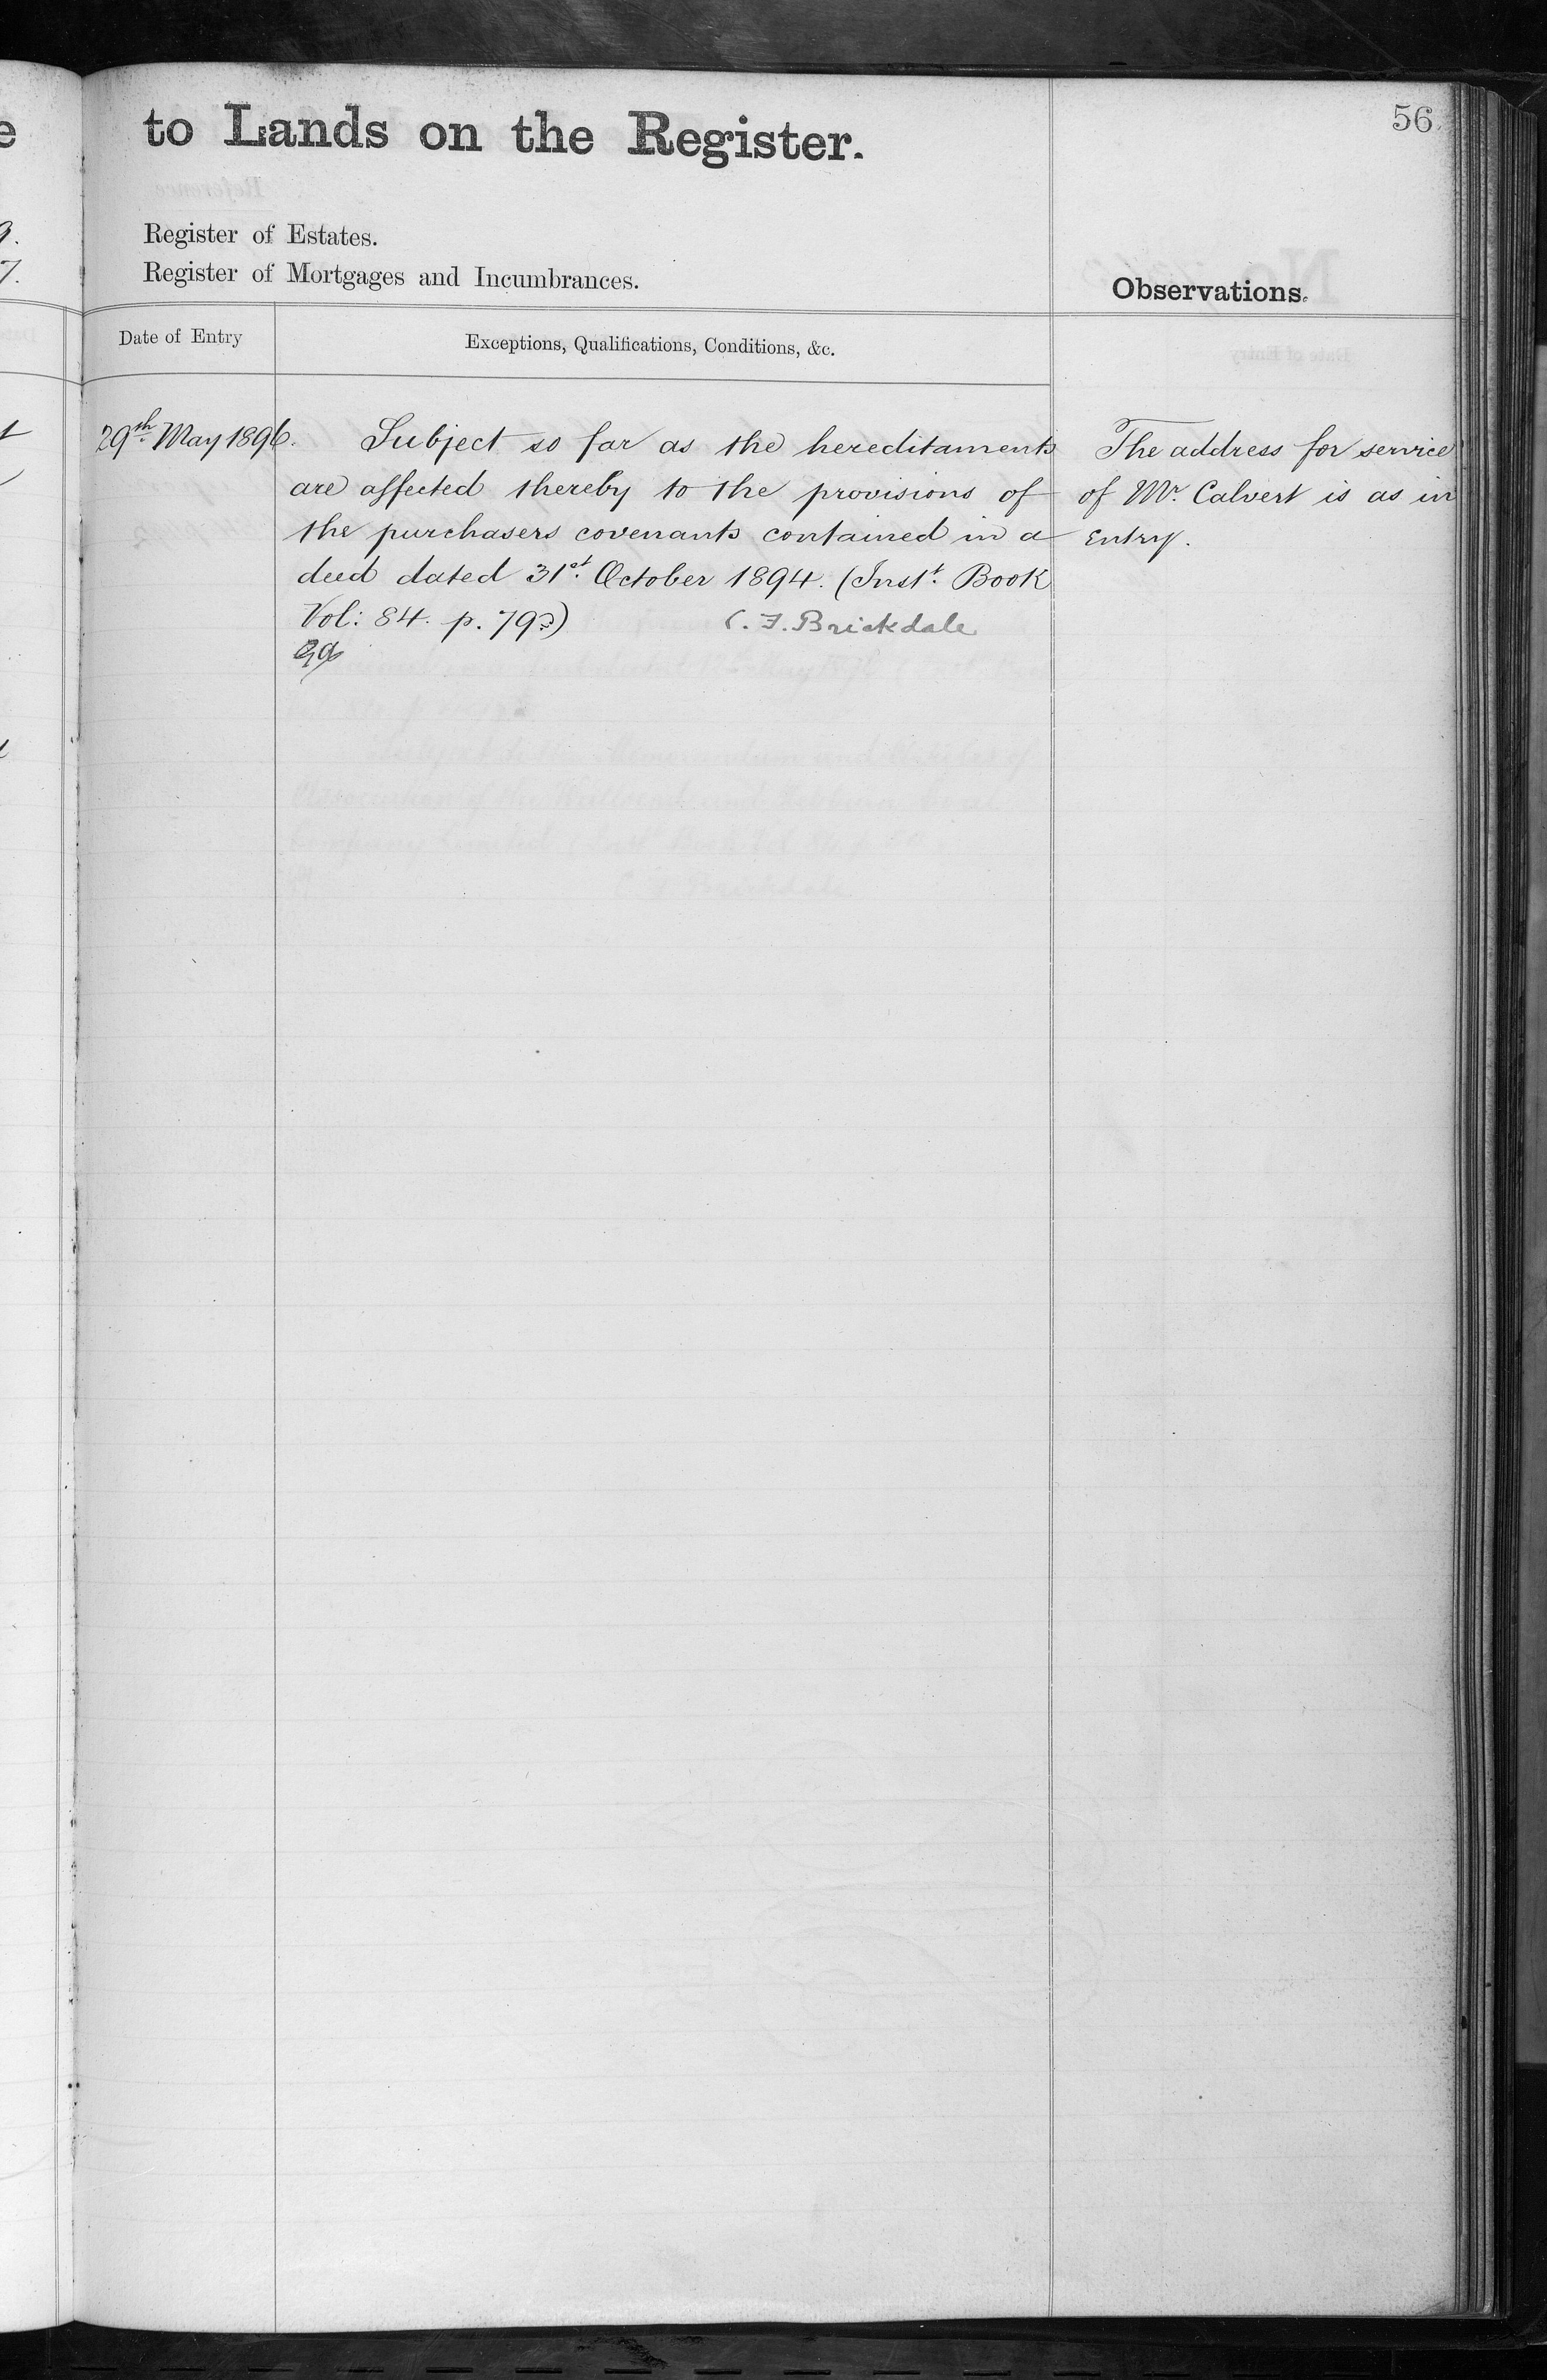 56.
to Lands on the Register.
Register of Estates.
Register of Mortgages and Incumbrances.
Observations.
Date of Entry
Exceptions, Qualifications, Conditions, &c.
29th. May 1896.
Subject so far as the hereditaments
are affected thereby to the provisions of
the purchasers covenants contained in a
deed dated 31st. October 1894. (Inst. Book
Vol: 84. p. 79)
C. F. Brickdale
The address for service
of Mr. Calvert is as in
Entry.